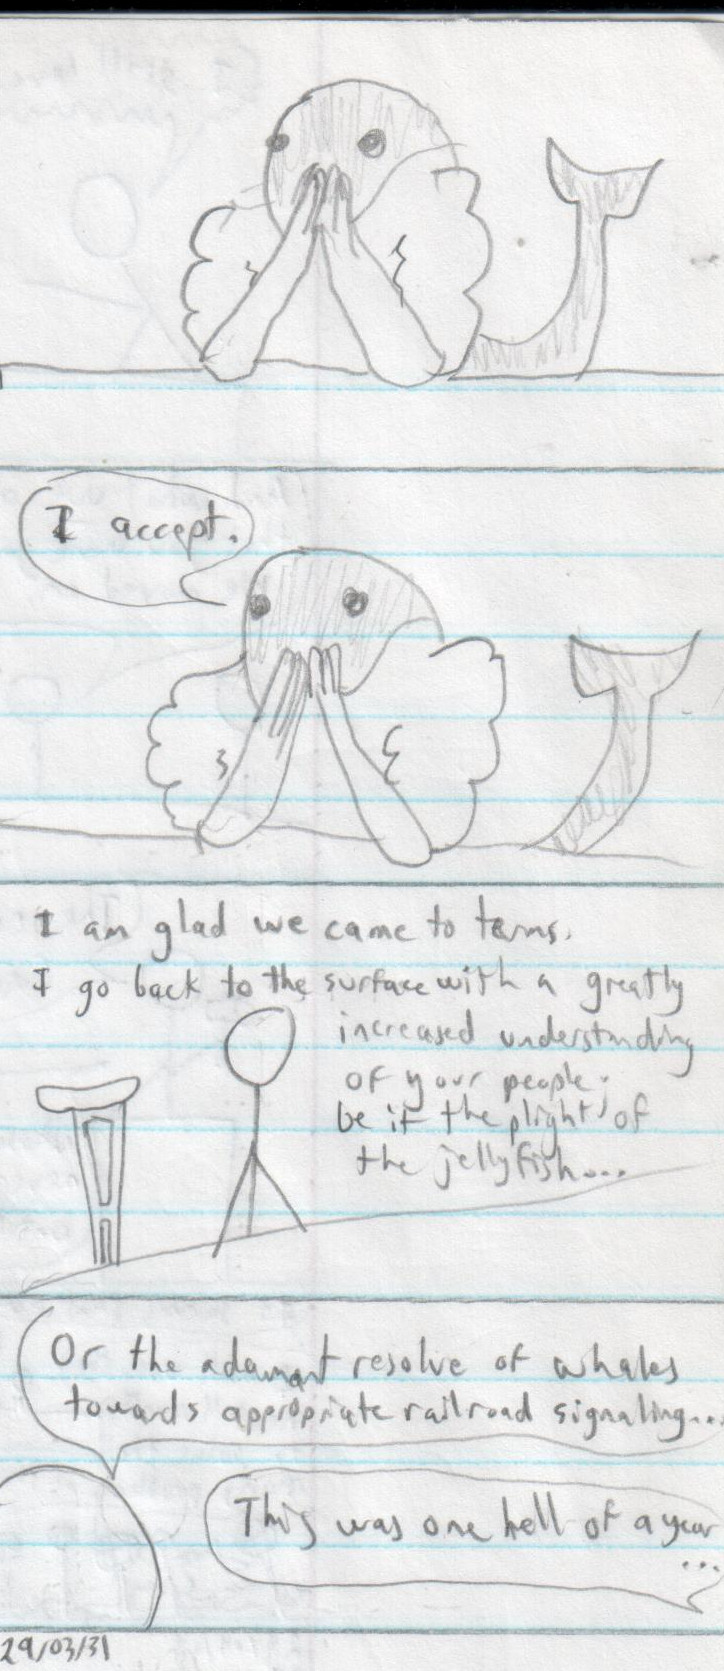 I accept.
I am glad we came to terms.
I go back to the surface with a greatly
increased understanding
of your people.
be it the plight of
the jellyfish...
Or the adamant resolve of whales
towards appropriate railroad signaling...
This was one hell of a year
...
29/03/31